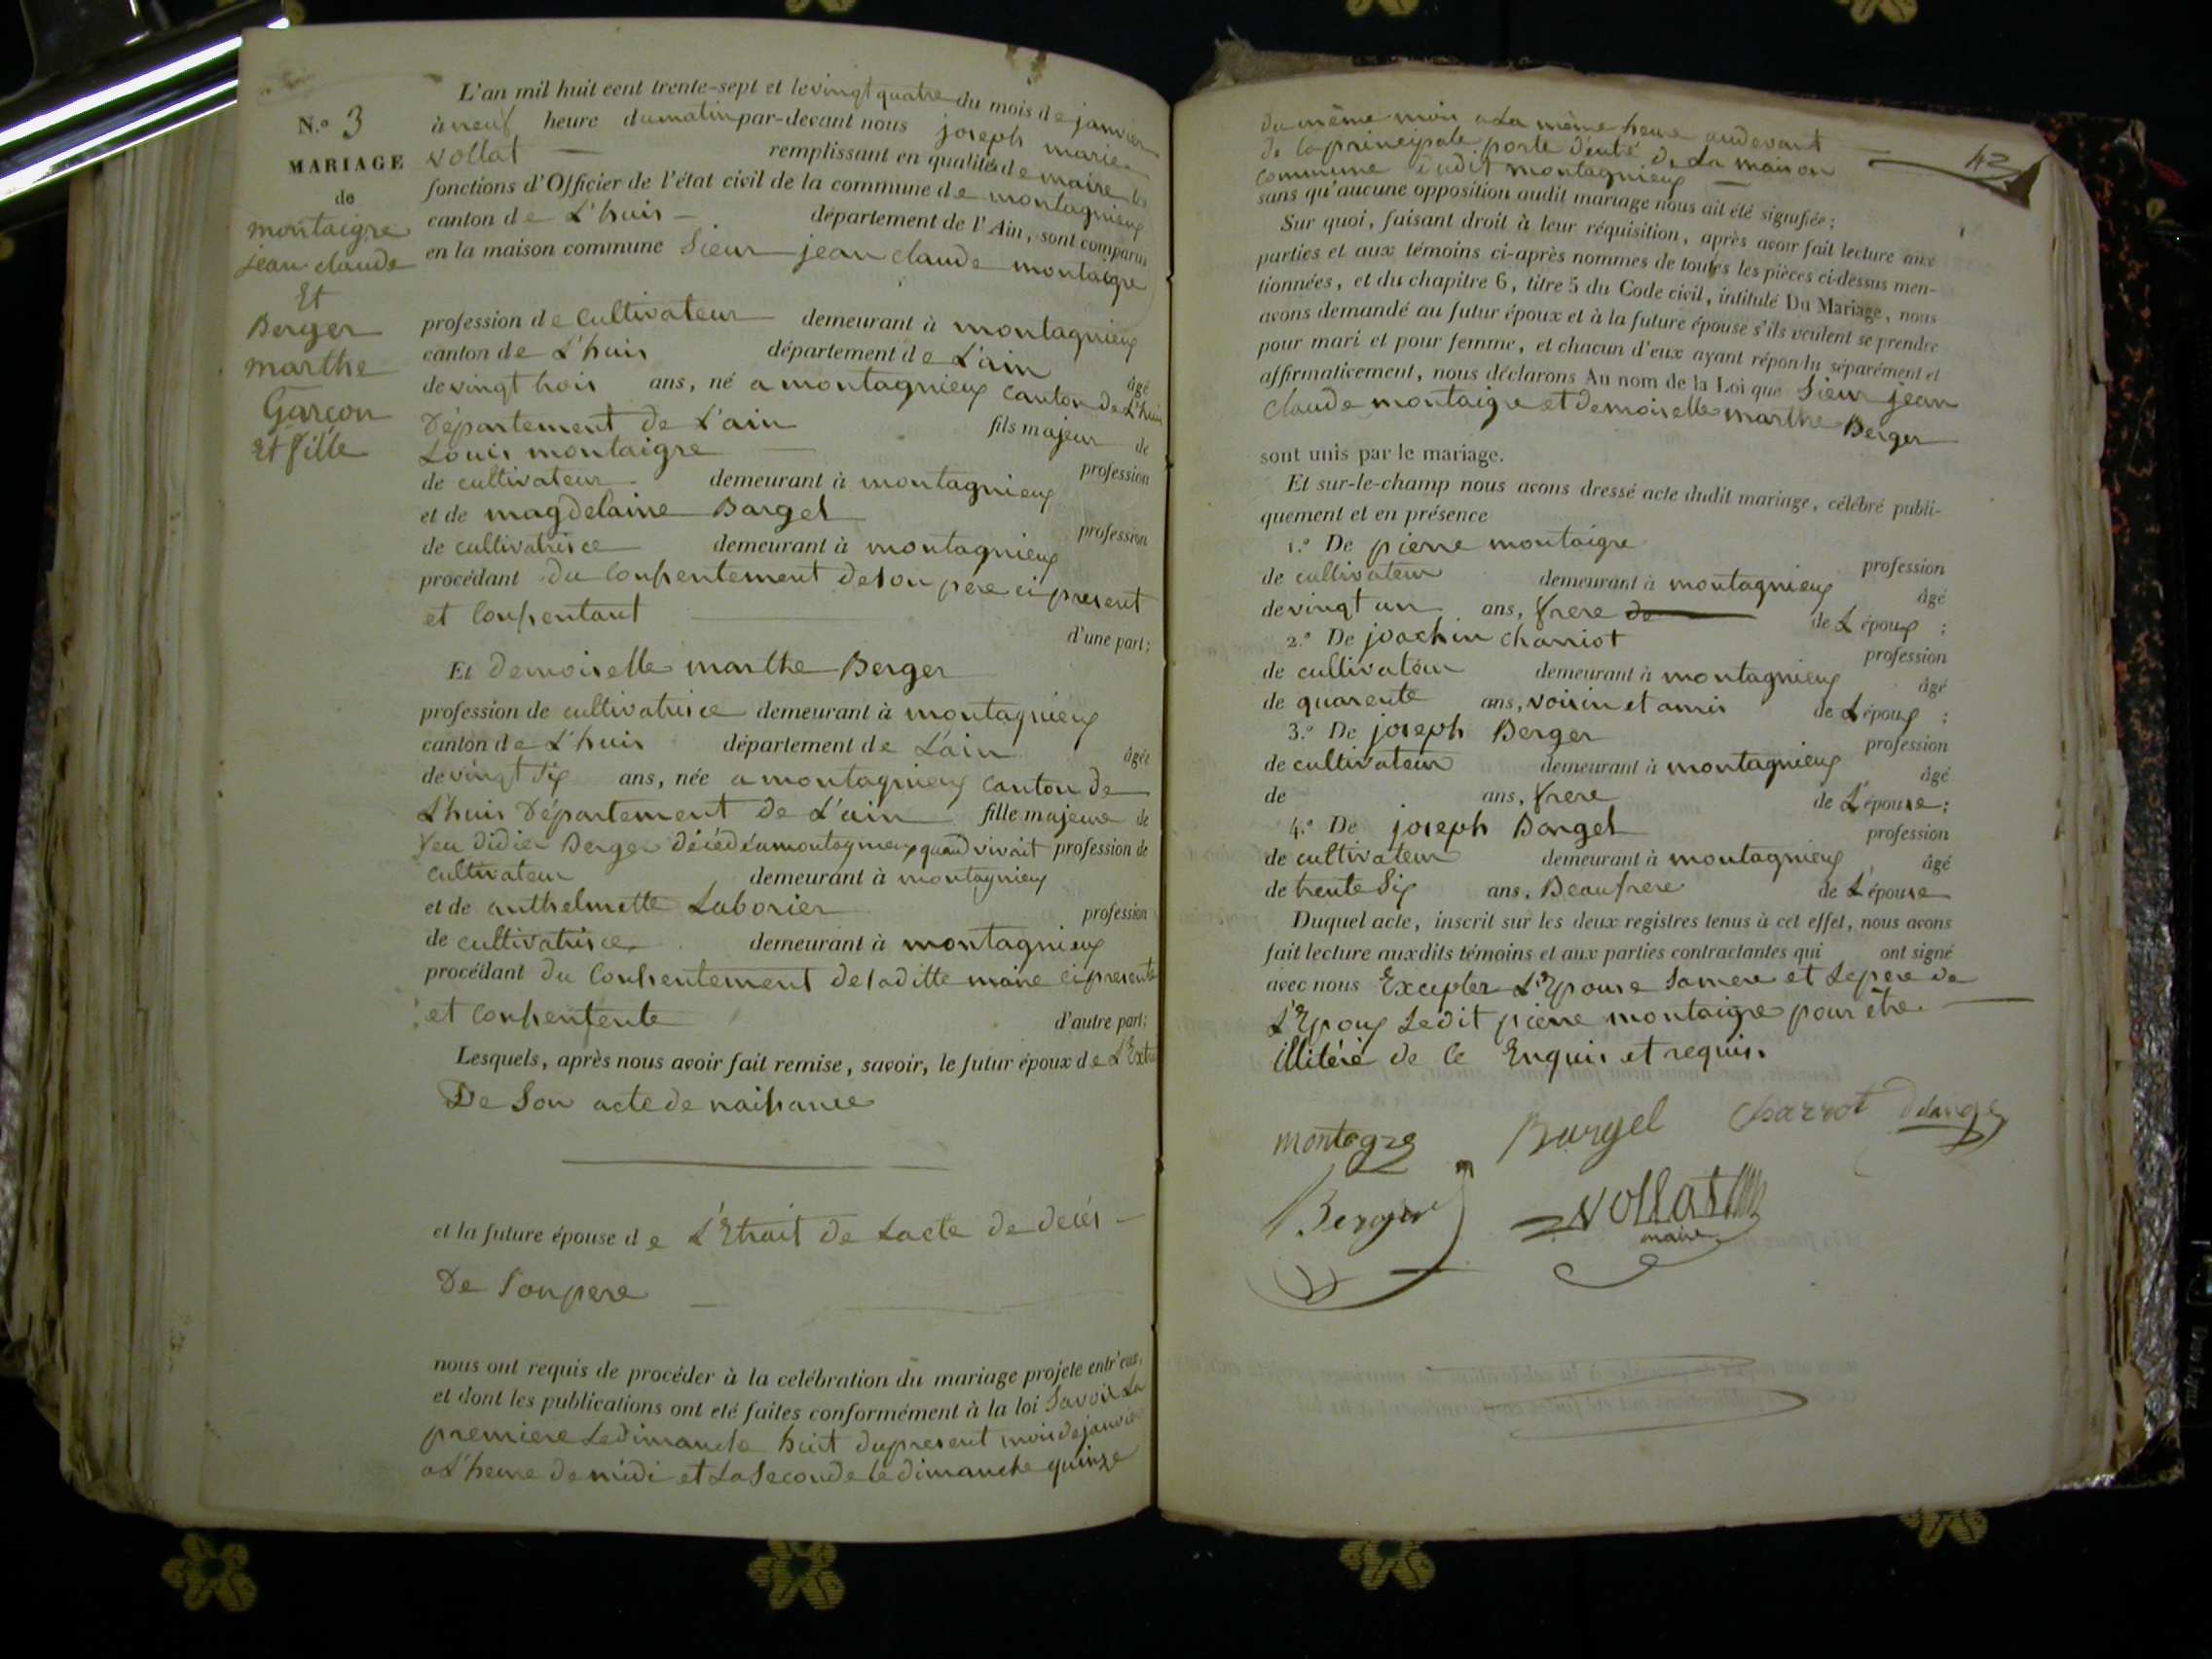 N.o 3
MARIAGE
de
montaigre
jean claude
Et
Berger
marthe
Garçon
et fille
L'an mil huit cent trente-sept et le vingt quatre du mois de janvier
à neuf heure du matin par-devant nous joseph marie
vollat remplissant en qualité de maire les
fonctions d'Officier de l'état civil de la commune de montagnieux
canton de L'huis département de l'Ain, sont comparus
en la maison commune Sieur jean claude montaigre
profession de cultivateur demeurant à montagnieux
canton de L'huis département de L'ain âgé
de vingt trois ans, né a montagnieux canton de L'huis
Département de L'ain fils majeur de
Louis montaigre profession
de cultivateur demeurant à montagnieux
et de magdelaine Bargel profession
de cultivatrice demeurant à montagnieux
procédant du consentement de son père ci present
et consentant
d'une part;
Et Demoiselle marthe Berger
profession de cultivatrice demeurant à montagnieux
canton de L'huis département de L'ain âgée
de vingt six ans, née a montagnieux canton de
L'huis Département de L'ain fille majeure de
feu didier Berger décédé a montagnieux quand vivoit profession de
cultivateur demeurant à montagnieux
et de anthelmette Laborier profession
de cultivatrice demeurant à montagnieux
procédant du consentement de saditte maire ci presente
et consentente d'autre part;
Lesquels, après nous avoir fait remise, savoir, le futur époux de L'Extrait
De Son acte de naissance
et la future épouse de L'Etrait de Lacte de décés
De Son pere
nous ont requis de procéder à la celébration du mariage projete entr'eux,
et dont les publications ont eté faites conformément à la loi Savoir La
premiere Le dimanche huit du present mois de janvier
a L'heure de midi et La Seconde le dimanche quinze
du même mois a La même heure audevant
de la principale porte d'entré de La maison
commune dudit montagnieux
42
sans qu'aucune opposition audit mariage nous ait été signifiée;
Sur quoi, faisant droit à leur réquisition, après avoir fait lecture aux
parties et aux témoins ci-après nommes de toutes les pièces ci-dessus men-
tionnées, et du chapitre 6, titre 5 du Code civil, intitulé Du Mariage, nous
avons demandé au futur époux et à la future épouse s'ils veulent se prendre
pour mari et pour femme, et chacun d'eux ayant répondu séparément et
affirmativement, nous déclarons Au nom de la Loi que Sieur jean
claude montaigre et demoiselle marthe Berger
sont unis par le mariage.
Et sur-le-champ nous avons dressé acte dudit mariage, célébré publi-
quement et en présence
1.o De pierre montaigre profession
de cultivateur demeurant à montagnieux âgé
de vingt un ans, frere de L'époux ;
2.o De joachin charriot profession
de cultivateur demeurant à montagnieux âgé
de quarente ans, voisin et amis de L'époux ;
3.o De joseph Berger profession
de cultivateur demeurant à montagnieux âgé
de ans, frere de L'épouse ;
4.o De joseph Bargel profession
de cultivateur demeurant à montagnieux âgé
de trente Six ans, Beaufrere de L'épouse
Duquel acte, inscrit sur les deux registres tenus à cet effet, nous avons
fait lecture auxdits témoins et aux parties contractantes qui ont signé
avec nous Excepter L'Epouse Samere et Le pere de
L'Epoux Ledit pierre montaigre pour être
illitéré de Ce Enquis et requis.
montagre Bargel Charrot
Berger vollat
maire